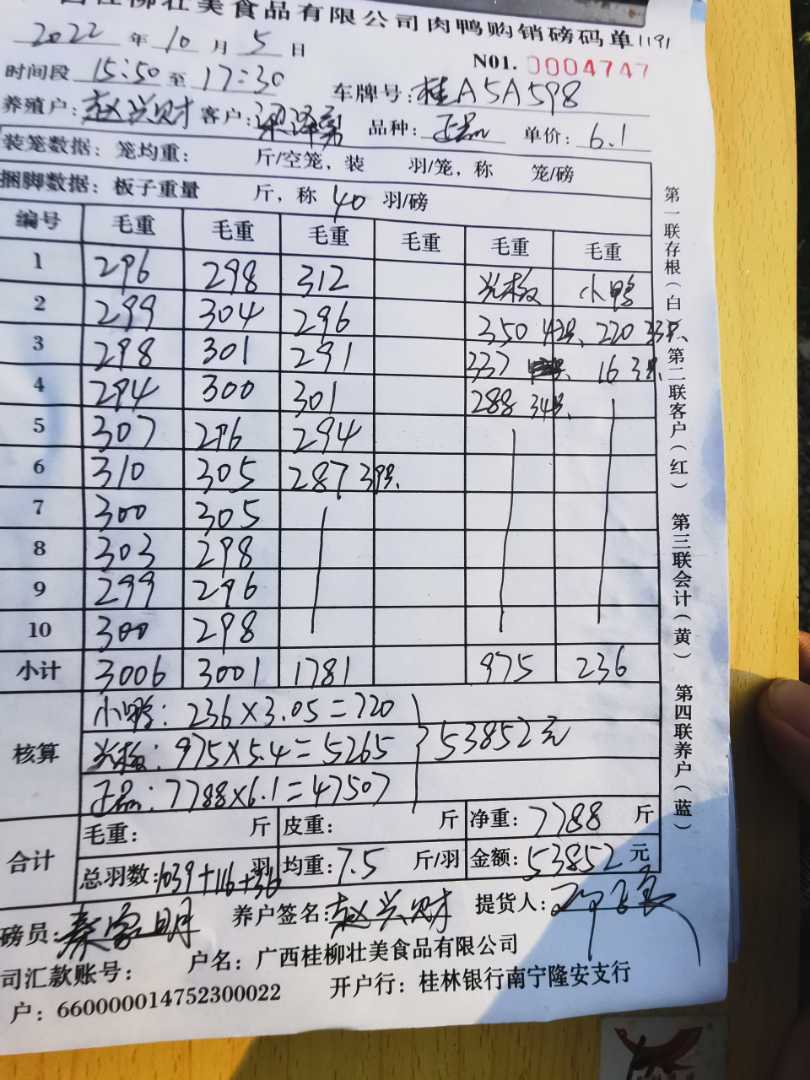 西桂柳壮美食品有限公司肉鸭购销磅码单1191
2022 年 10 月 5 日
N01. 0004747
时间段 15:50 至 17:30 车牌号: 桂A5A598
养殖户: 赵兴财 客户: 梁泽勇 品种: 正品 单价: 6.1
装笼数据: 笼均重: 斤/空笼, 装 羽/笼, 称 笼/磅
捆脚数据: 板子重量 斤, 称 40 羽/磅
编号 毛重 毛重 毛重 毛重 毛重 毛重
1 296 298 312 光板 小鸭
2 299 304 296 350 42只、 220 33只、
3 298 301 291 337 16 3只.
4 294 300 301 288 34只.
5 307 296 294
6 310 305 287 39只.
7 300 305
8 303 298
9 299 296
10 300 298
小计 3006 3001 1781 975 236
核算 小鸭: 236×3.05=720
光板: 975×5.4=5265 } 53852元
正品: 7788×6.1=47507
合计 毛重: 斤 皮重: 斤 净重: 7788 斤
总羽数: 1039+116+36 羽 均重: 7.5 斤/羽 金额: 53852 元
磅员: 秦家明 养户签名: 赵兴财 提货人:
司汇款账号: 户名: 广西桂柳壮美食品有限公司
户: 660000014752300022 开户行: 桂林银行南宁隆安支行
第一联存根(白) 第二联客户(红) 第三联会计(黄) 第四联养户(蓝)